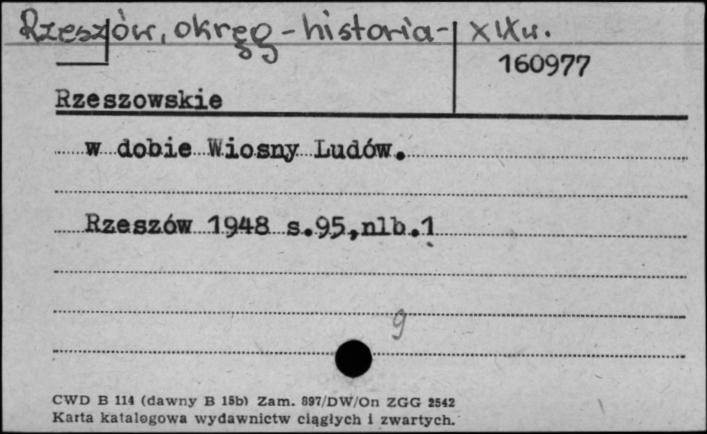 Rzeszów, okręg - historia - XIXw.
160977
Rzeszowskie
w dobie Wiosny Ludów.
Rzeszów 1948 s.95,nlb.1
9
CWD B 114 (dawny B 15b) Zam. 897/DW/On ZGG 2542
Karta katalogowa wydawnictw ciągłych i zwartych.